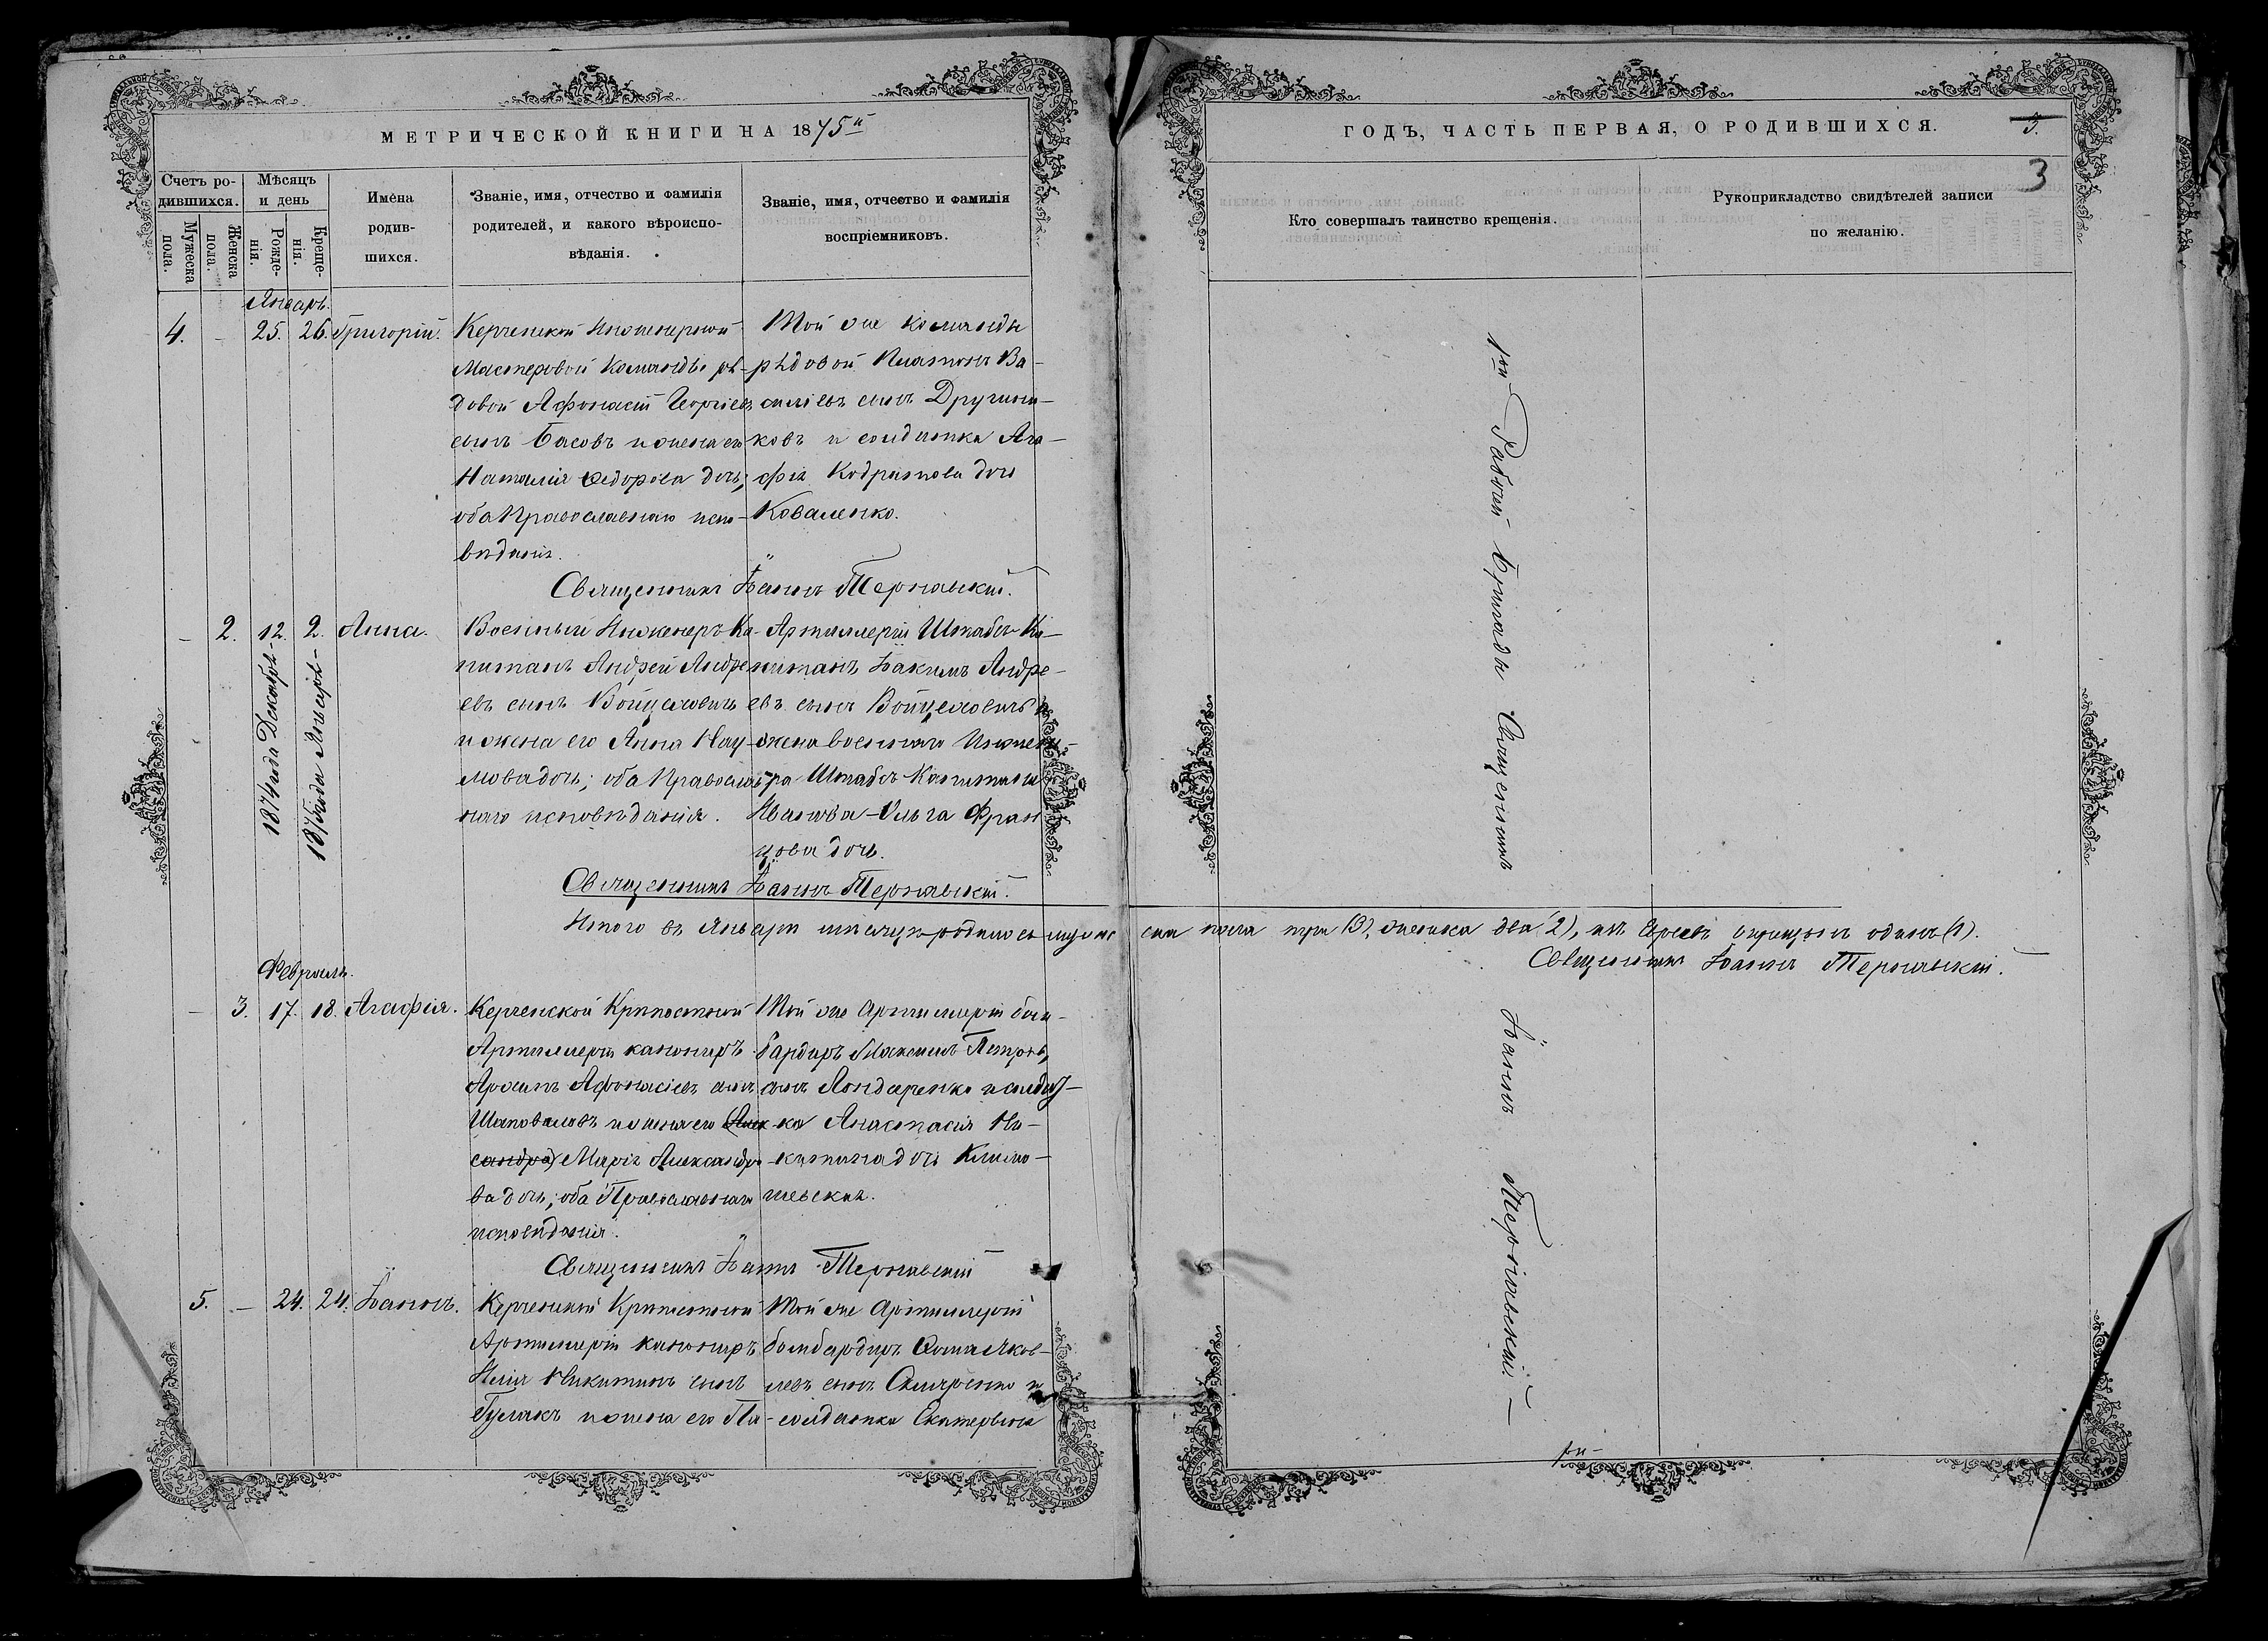 МЕТРИЧЕСКОЙ КНИГИ НА 1875й
ГОДЪ, ЧАСТЬ ПЕРВАЯ, О РОДИВШИХСЯ.
3.
3
Счетъ ро-
дившихся.
Мужеска пола.
Женска пола.
Мѣсяцъ
и день
Рожде-
нія.
Креще-
нія.
Имена
родив-
шихся.
Званіе, имя, отчество и фамилія
родителей, и какого вѣроиспо-
вѣданія.
Званіе, имя, отчество и фамилія
воспріемниковъ.
Кто совершалъ таинство крещенія.
Рукоприкладство свидѣтелей записи
по желанію.
Январь.
4. – 25. 26. Григорій.
Керченской Инженерной
Мастеровой Команды ря-
довой Афонасій Георгіевъ
сынъ Басовъ и жена его
Наталія Ѳедорова дочь;
оба Православнаго испо-
вѣданія.
Той же команды
рядовой Платонъ Ва-
силіевъ сынъ Дружин-
ковъ и солдатка Ага-
фія Кодратова дочь
Коваленко.
Священникъ Іоаннъ Тернавскій.
– 2. 12. 2. Анна.
1874 года Декабря
1875 года Января
Военный Инженеръ Ка-
питанъ Андрей Андре
евъ сынъ Войцеховичъ
и жена его Анна Нау-
мова дочь; оба Православ-
наго исповѣданія.
Артиллеріи Штабсъ Ка-
питанъ Іоакимъ Андре-
евъ сынъ Войцеховичъ и
жена военнаго Инжене-
ра Штабсъ Капитана
Иванова Ольга Фран
цова дочь.
Священникъ Іоаннъ Тернавскій.
Итого въ Январѣ мѣсяцѣ родилось мужес
ска пола три (3), женска два (2), изъ Евреевъ окрещенъ одинъ (1).
Священникъ Іоаннъ Тернавскій.
Февраль.
– 3. 17. 18. Агафія.
Керченской Крѣпостной
Артиллеріи канониръ
Афонасіевъ сынъ
Шаповаловъ и жена его (Алек
сандра) Марія Александро
ва дочь; оба Православнаго
исповѣданія.
Той же Артиллеріи бом-
бардиръ Максимъ Петровъ
сынъ Бондаренко и солдат-
ка Анастасія Ни-
китина дочь Климо-
шевская.
Священникъ Іоаннъ Тернавскій
5. – 24. 24. Іоаннъ.
Керченской Крѣпостной
Артиллеріи канониръ
Илія Никитинъ сынъ
Гулякъ и жена его Па-
Той же Артиллеріи
бомбардиръ Ѳома Яков-
левъ сынъ Скляренко и
солдатка Екатерина
Священникъ
Іоаннъ Тернавскій